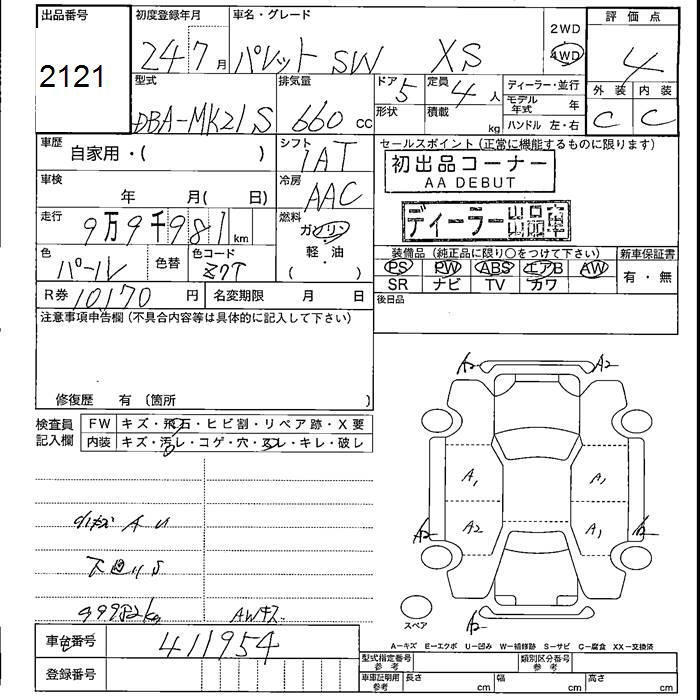 出品番号 初度登録年月 車名・グレード 2WD 評価点
2121 24 7月 パレット SW XS 4WD 4
型式 排気量 ドア 定員 ディーラー・並行 外装 内装
DBA-MK21S 660 cc 5 4人 モデル年式 年 C C
形状 積載 kg ハンドル 左・右
車歴 シフト セールスポイント(正常に機能するものに限ります)
自家用・( ) IAT 初出品コーナー
AA DEBUT
車検 年 月( 日) 冷房 AAC
ディーラー出品車
走行 9万9千981km 燃料 ガソリン
軽・油
( )
装備品(純正品に限り○をつけて下さい) 新車保証書
色 パール 色替 色コード Z7T PS PW ABS エアB AW 有・無
SR ナビ TV カワ
R券 10170円 名変期限 月 日 後日品
注意事項申告欄(不具合内容等は具体的に記入して下さい)
修復歴 有(箇所 )
検査員記入欄 FW キズ・飛石・ヒビ割・リペア跡・X要
内装 キズ・汚レ・コゲ・穴・スレ・キレ・破レ
A2 A2
A1 A1
A2 A2 A1
A2
スペア
小キズ A U
下廻り S
99982kg AWキズ
車台番号 411954
登録番号
A－キズ E－エクボ U－凹み W－補修跡 S－サビ C－腐食 XX－交換済
型式指定番号 参考 類別区分番号 参考
車庫証明用 参考 長さ cm 幅 cm 高さ cm